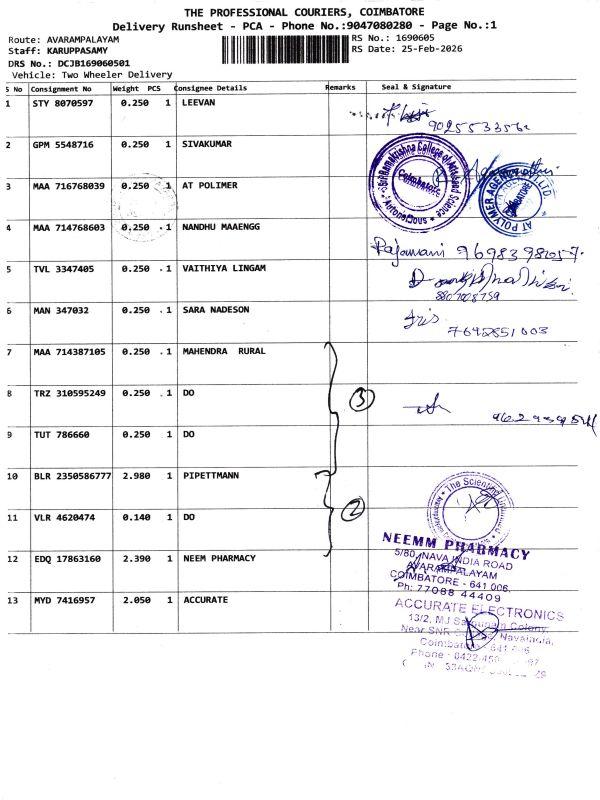 THE PROFESSIONAL COURIERS, COIMBATORE
Delivery Runsheet - PCA - Phone No.:9047080280 - Page No.:1
Route: AVARAMPALAYAM
RS No.: 1690605
Staff: KARUPPASAMY
RS Date: 25-Feb-2026
DRS No.: DCJB169060501
Vehicle: Two Wheeler Delivery
S No Consignment No Weight PCS Consignee Details Remarks Seal & Signature
1 STY 8070597 0.250 1 LEEVAN
2 GPM 5548716 0.250 1 SIVAKUMAR
Sri Ramakrishna College of Arts and Science
Coimbatore
Autonomous
3 MAA 716768039 0.250 1 AT POLIMER
AT POLYMER AGENCY PVT LTD
COIMBATORE
4 MAA 714768603 0.250 1 NANDHU MAAENGG
Rajamani
5 TVL 3347405 0.250 1 VAITHIYA LINGAM
6 MAN 347032 0.250 1 SARA NADESON
7642851003
7 MAA 714387105 0.250 1 MAHENDRA RURAL
8 TRZ 310595249 0.250 1 DO
3
9 TUT 786660 0.250 1 DO
10 BLR 2350586777 2.980 1 PIPETTMANN
The Scientific
11 VLR 4620474 0.140 1 DO
2
NEEMM PHARMACY
12 EDQ 17863160 2.390 1 NEEM PHARMACY
5/80, NAVA INDIA ROAD
AVARAMPALAYAM
COIMBATORE - 641 006.
Ph: 77088 44409
13 MYD 7416957 2.050 1 ACCURATE
ACCURATE ELECTRONICS
13/2, MJ Colony,
Near SNR Navaindia,
Coimbatore 641 006
Phone : 0422-450